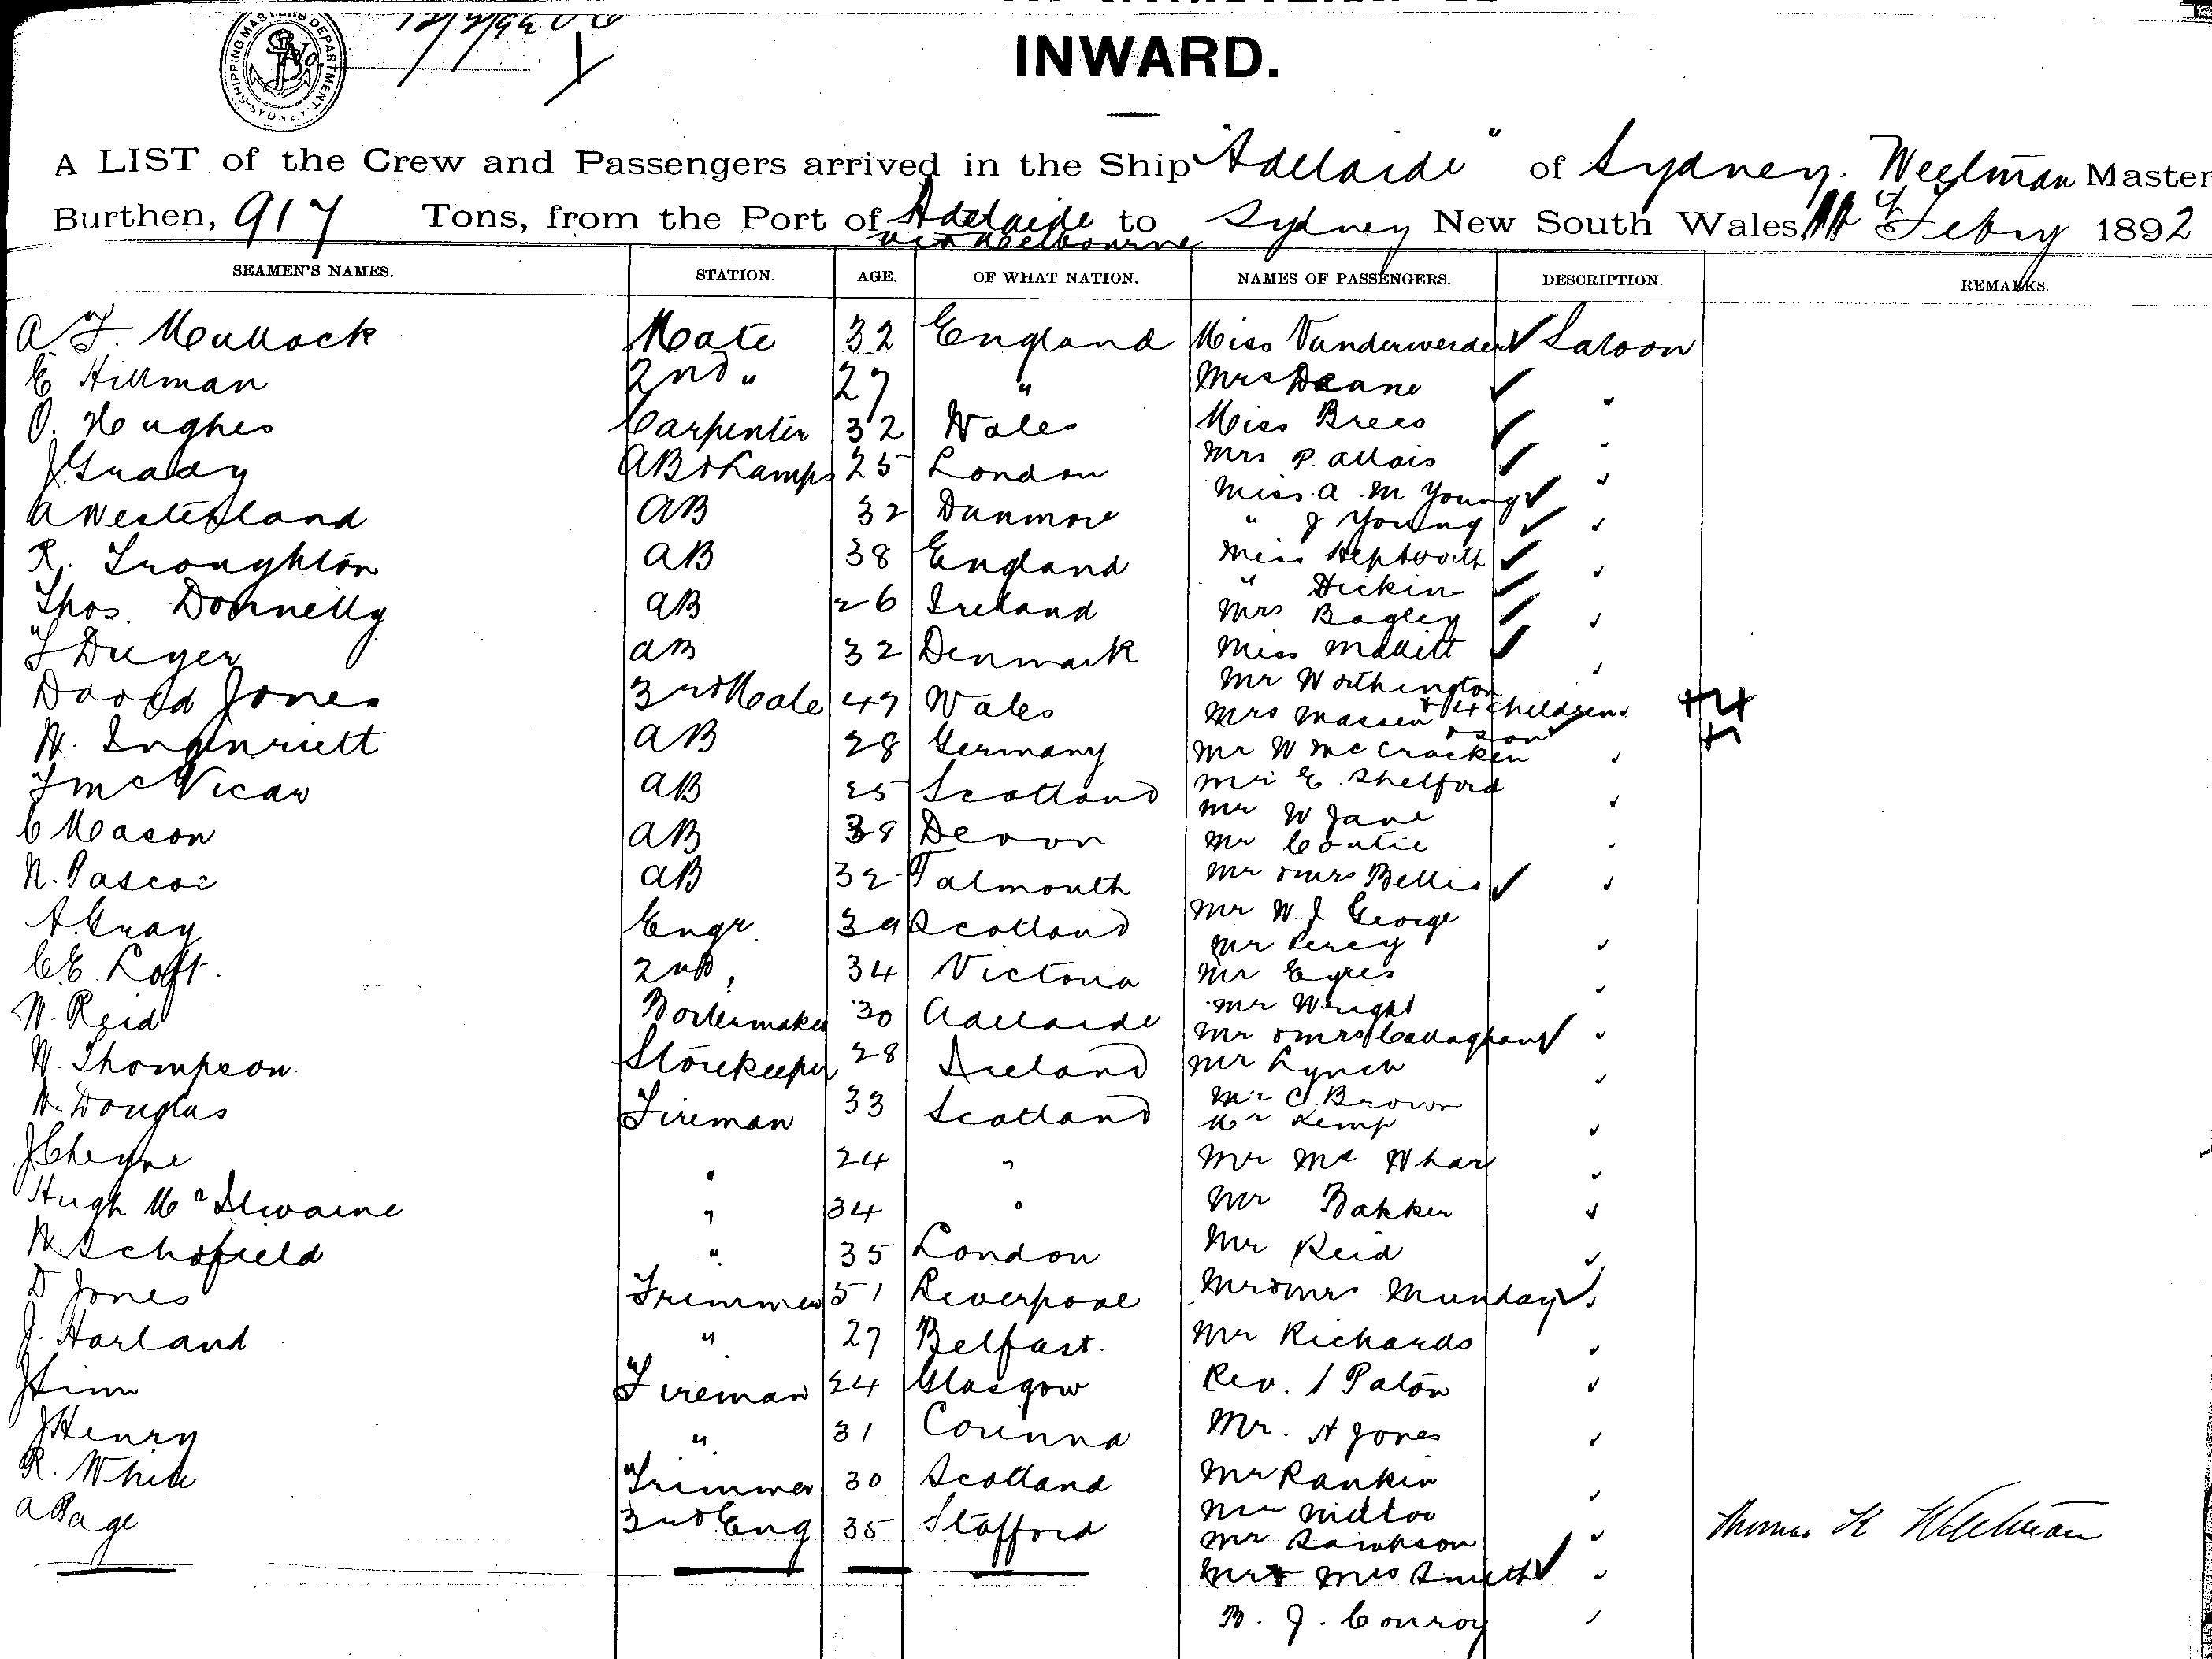 SHIPPING MASTERS DEPARTMENT SYDNEY
No.
INWARD.
A LIST of the Crew and Passengers arrived in the Ship "Adelaide" of Sydney. Weelman Master
Burthen, 917 Tons, from the Port of Adelaide to Sydney New South Wales Febry 1892
via Melbourne
SEAMEN'S NAMES. STATION. AGE. OF WHAT NATION. NAMES OF PASSENGERS. DESCRIPTION. REMARKS.
Mate 32 England Miss Vanderwerden Saloon
E Hillman 2nd " 27 " Mrs Deane
O. Hughes Carpenter 32 Wales Miss Brees
J. Grady AB & Lamps 25 London Mrs P. Allais
A Westerland AB 32 Dunmore Miss. A. M Young
" J Young
R. Troughton AB 38 England Miss Hepworth
" Dickin
Thos. Donnelly AB 26 Ireland Mrs Bagley
J Dreyer AB 32 Denmark Miss
Mr Worthington
David Jones 3rd Mate 47 Wales Mrs Massen & 4 children
& son
AB 28 Germany Mr W McCracken
J McVicar AB 25 Scotland Mr E. Shelford
Mr W Jane
C Mason AB 38 Devon Mr
N. Pascoe AB 32 Falmouth Mr & Mrs Bellis
A. Gray Engr. 39 Scotland Mr W. J George
Mr Percy
C.E. Loft. 2nd " 34 Victoria Mr Eyres
Mr Wright
W. Reid Boilermaker 30 Adelaide Mr & Mrs Callaghan
W. Thompson. Storekeeper 28 Ireland Mr Lynch
W. Douglas Fireman 33 Scotland Mr C. Brown
Mr Kemp
J Cheyne " 24 " Mr Mc Whar
Hugh McIlwaine " 34 " Mr Bakker
W. Schofield " 35 London Mr Reid
D Jones Trimmer 51 Liverpool Mr & Mrs Munday
J. Harland " 27 Belfast. Mr Richards
J Sim Fireman 24 Glasgow Rev. J Paton
J Henry " 31 Mr. A Jones
R. White Trimmer 30 Scotland Mr Rankin
A Page 3rd Eng 35 Stafford Mr
Mr Sampson
Thomas K Weelman
Mr & Mrs Smith
B. J. Conroy